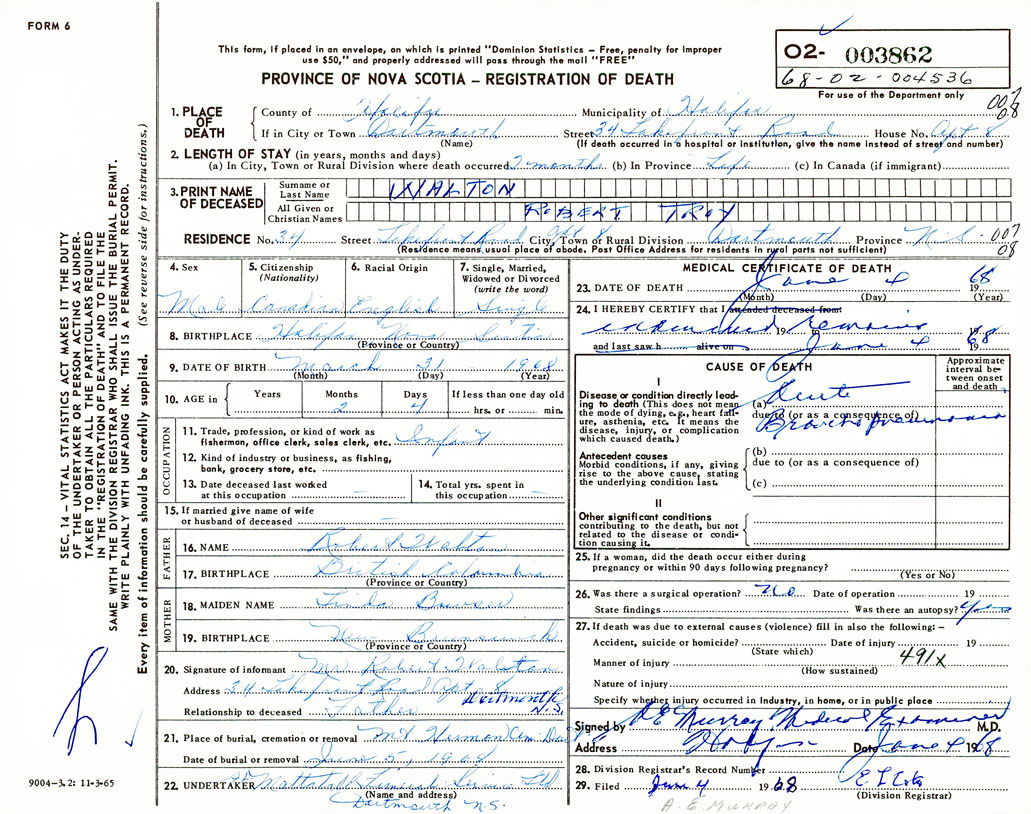 FORM 6
This form, if placed in an envelope, on which is printed "Dominion Statistics – Free, penalty for improper
use $50," and properly addressed will pass through the mail "FREE"
PROVINCE OF NOVA SCOTIA – REGISTRATION OF DEATH
02- 003862
68-02-004536
For use of the Department only
007
08
1. PLACE OF DEATH
County of Halifax Municipality of Halifax
If in City or Town Dartmouth Street 34 Lakefront Road House No. Apt 8
(Name) (If death occurred in a hospital or institution, give the name instead of street and number)
2. LENGTH OF STAY (in years, months and days)
(a) In City, Town or Rural Division where death occurred 2 months (b) In Province Life (c) In Canada (if immigrant)
3. PRINT NAME OF DECEASED
Surname or Last Name WALTON
All Given or Christian Names ROBERT TROY
RESIDENCE No. 34 Street Lakefront Road Apt 8 City, Town or Rural Division Dartmouth Province N.S. 007
08
(Residence means usual place of abode. Post Office Address for residents in rural parts not sufficient)
4. Sex
Male
5. Citizenship
(Nationality)
Canadian
6. Racial Origin
English
7. Single, Married,
Widowed or Divorced
(write the word)
Single
8. BIRTHPLACE Halifax Nova Scotia
(Province or Country)
9. DATE OF BIRTH March 31 1968
(Month) (Day) (Year)
10. AGE in Years Months Days If less than one day old
2 4 hrs. or min.
OCCUPATION
11. Trade, profession, or kind of work as
fisherman, office clerk, sales clerk, etc. Infant
12. Kind of industry or business, as fishing,
bank, grocery store, etc.
13. Date deceased last worked
at this occupation –
14. Total yrs. spent in
this occupation –
15. If married give name of wife
or husband of deceased –
FATHER
16. NAME Robert Walton
17. BIRTHPLACE British Columbia
(Province or Country)
MOTHER
18. MAIDEN NAME Linda Bowser
19. BIRTHPLACE New Brunswick
(Province or Country)
20. Signature of informant Mr Robert Walton
Address 34 Lakefront Road Apt. 8
Dartmouth N.S.
Relationship to deceased Father
21. Place of burial, cremation or removal Mt Hermon Cem.
Date of burial or removal June 5, 1968
22. UNDERTAKER Mattatall Funeral Service Ltd
(Name and address)
Dartmouth N.S.
MEDICAL CERTIFICATE OF DEATH
23. DATE OF DEATH June 4 1968
(Month) (Day) (Year)
24. I HEREBY CERTIFY that I attended deceased from:
examined remains 19 19
and last saw h alive on June 4 1968
CAUSE OF DEATH
Approximate
interval be-
tween onset
and death
I
Disease or condition directly lead-
ing to death (This does not mean
the mode of dying, e.g., heart fail-
ure, asthenia, etc. It means the
disease, injury, or complication
which caused death.)
(a) Acute
due to (or as a consequence of)
Bronchopneumonia
Antecedent causes
Morbid conditions, if any, giving
rise to the above cause, stating
the underlying condition last.
(b)
due to (or as a consequence of)
(c)
II
Other significant conditions
contributing to the death, but not
related to the disease or condi-
tion causing it.
25. If a woman, did the death occur either during
pregnancy or within 90 days following pregnancy?
(Yes or No)
26. Was there a surgical operation? No Date of operation 19
State findings Was there an autopsy? Yes
27. If death was due to external causes (violence) fill in also the following: –
Accident, suicide or homicide? Date of injury 19
(State which)
Manner of injury 491X
(How sustained)
Nature of injury
Specify whether injury occurred in industry, in home, or in public place
Signed by A E Murray Medical Examiner M.D.
Address Date June 4 1968
28. Division Registrar's Record Number
29. Filed June 4 1968
(Division Registrar)
A. E. MURRAY
SEC. 14 – VITAL STATISTICS ACT MAKES IT THE DUTY
OF THE UNDERTAKER OR PERSON ACTING AS UNDER-
TAKER TO OBTAIN ALL THE PARTICULARS REQUIRED
IN THE "REGISTRATION OF DEATH" AND TO FILE THE
SAME WITH THE DIVISION REGISTRAR WHO SHALL ISSUE THE BURIAL PERMIT.
WRITE PLAINLY WITH UNFADING INK. THIS IS A PERMANENT RECORD.
Every item of information should be carefully supplied. (See reverse side for instructions.)
9004-3.2: 11-3-65